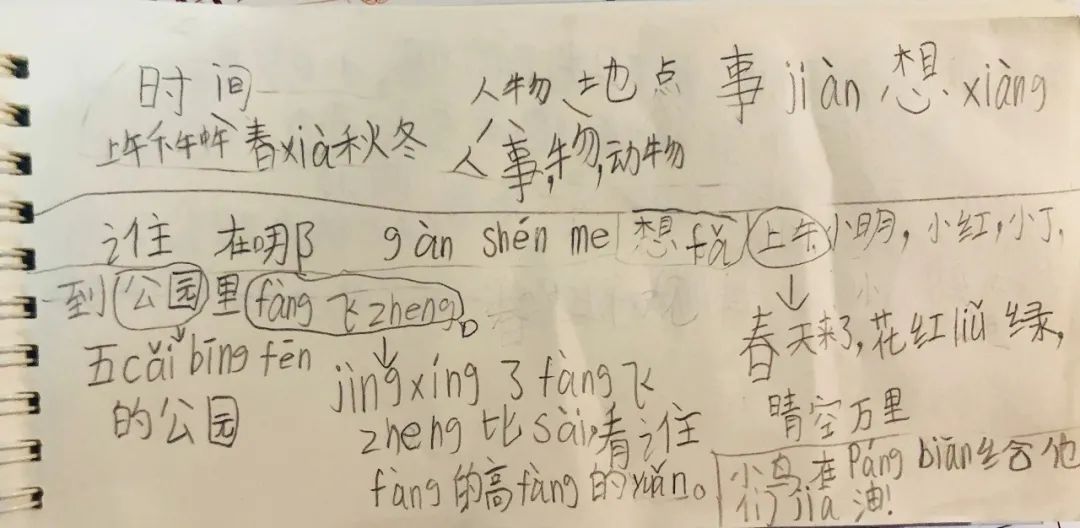 时间 人物、地点 事jiàn 想xiàng
上午下午中午春xià秋冬 人事,物,动物
谁 在哪 gàn shén me 想fǎ 上午小明,小红,小丁,
到公园里fàng飞zheng。
五cǎi bīng fēn
的公园
jìng xíng了fàng飞
zheng比sài,看谁
fàng的高fàng的yuǎn。
春天来了,花红liǔ绿,
晴空万里
小鸟在Páng biān给他
们jiā油!